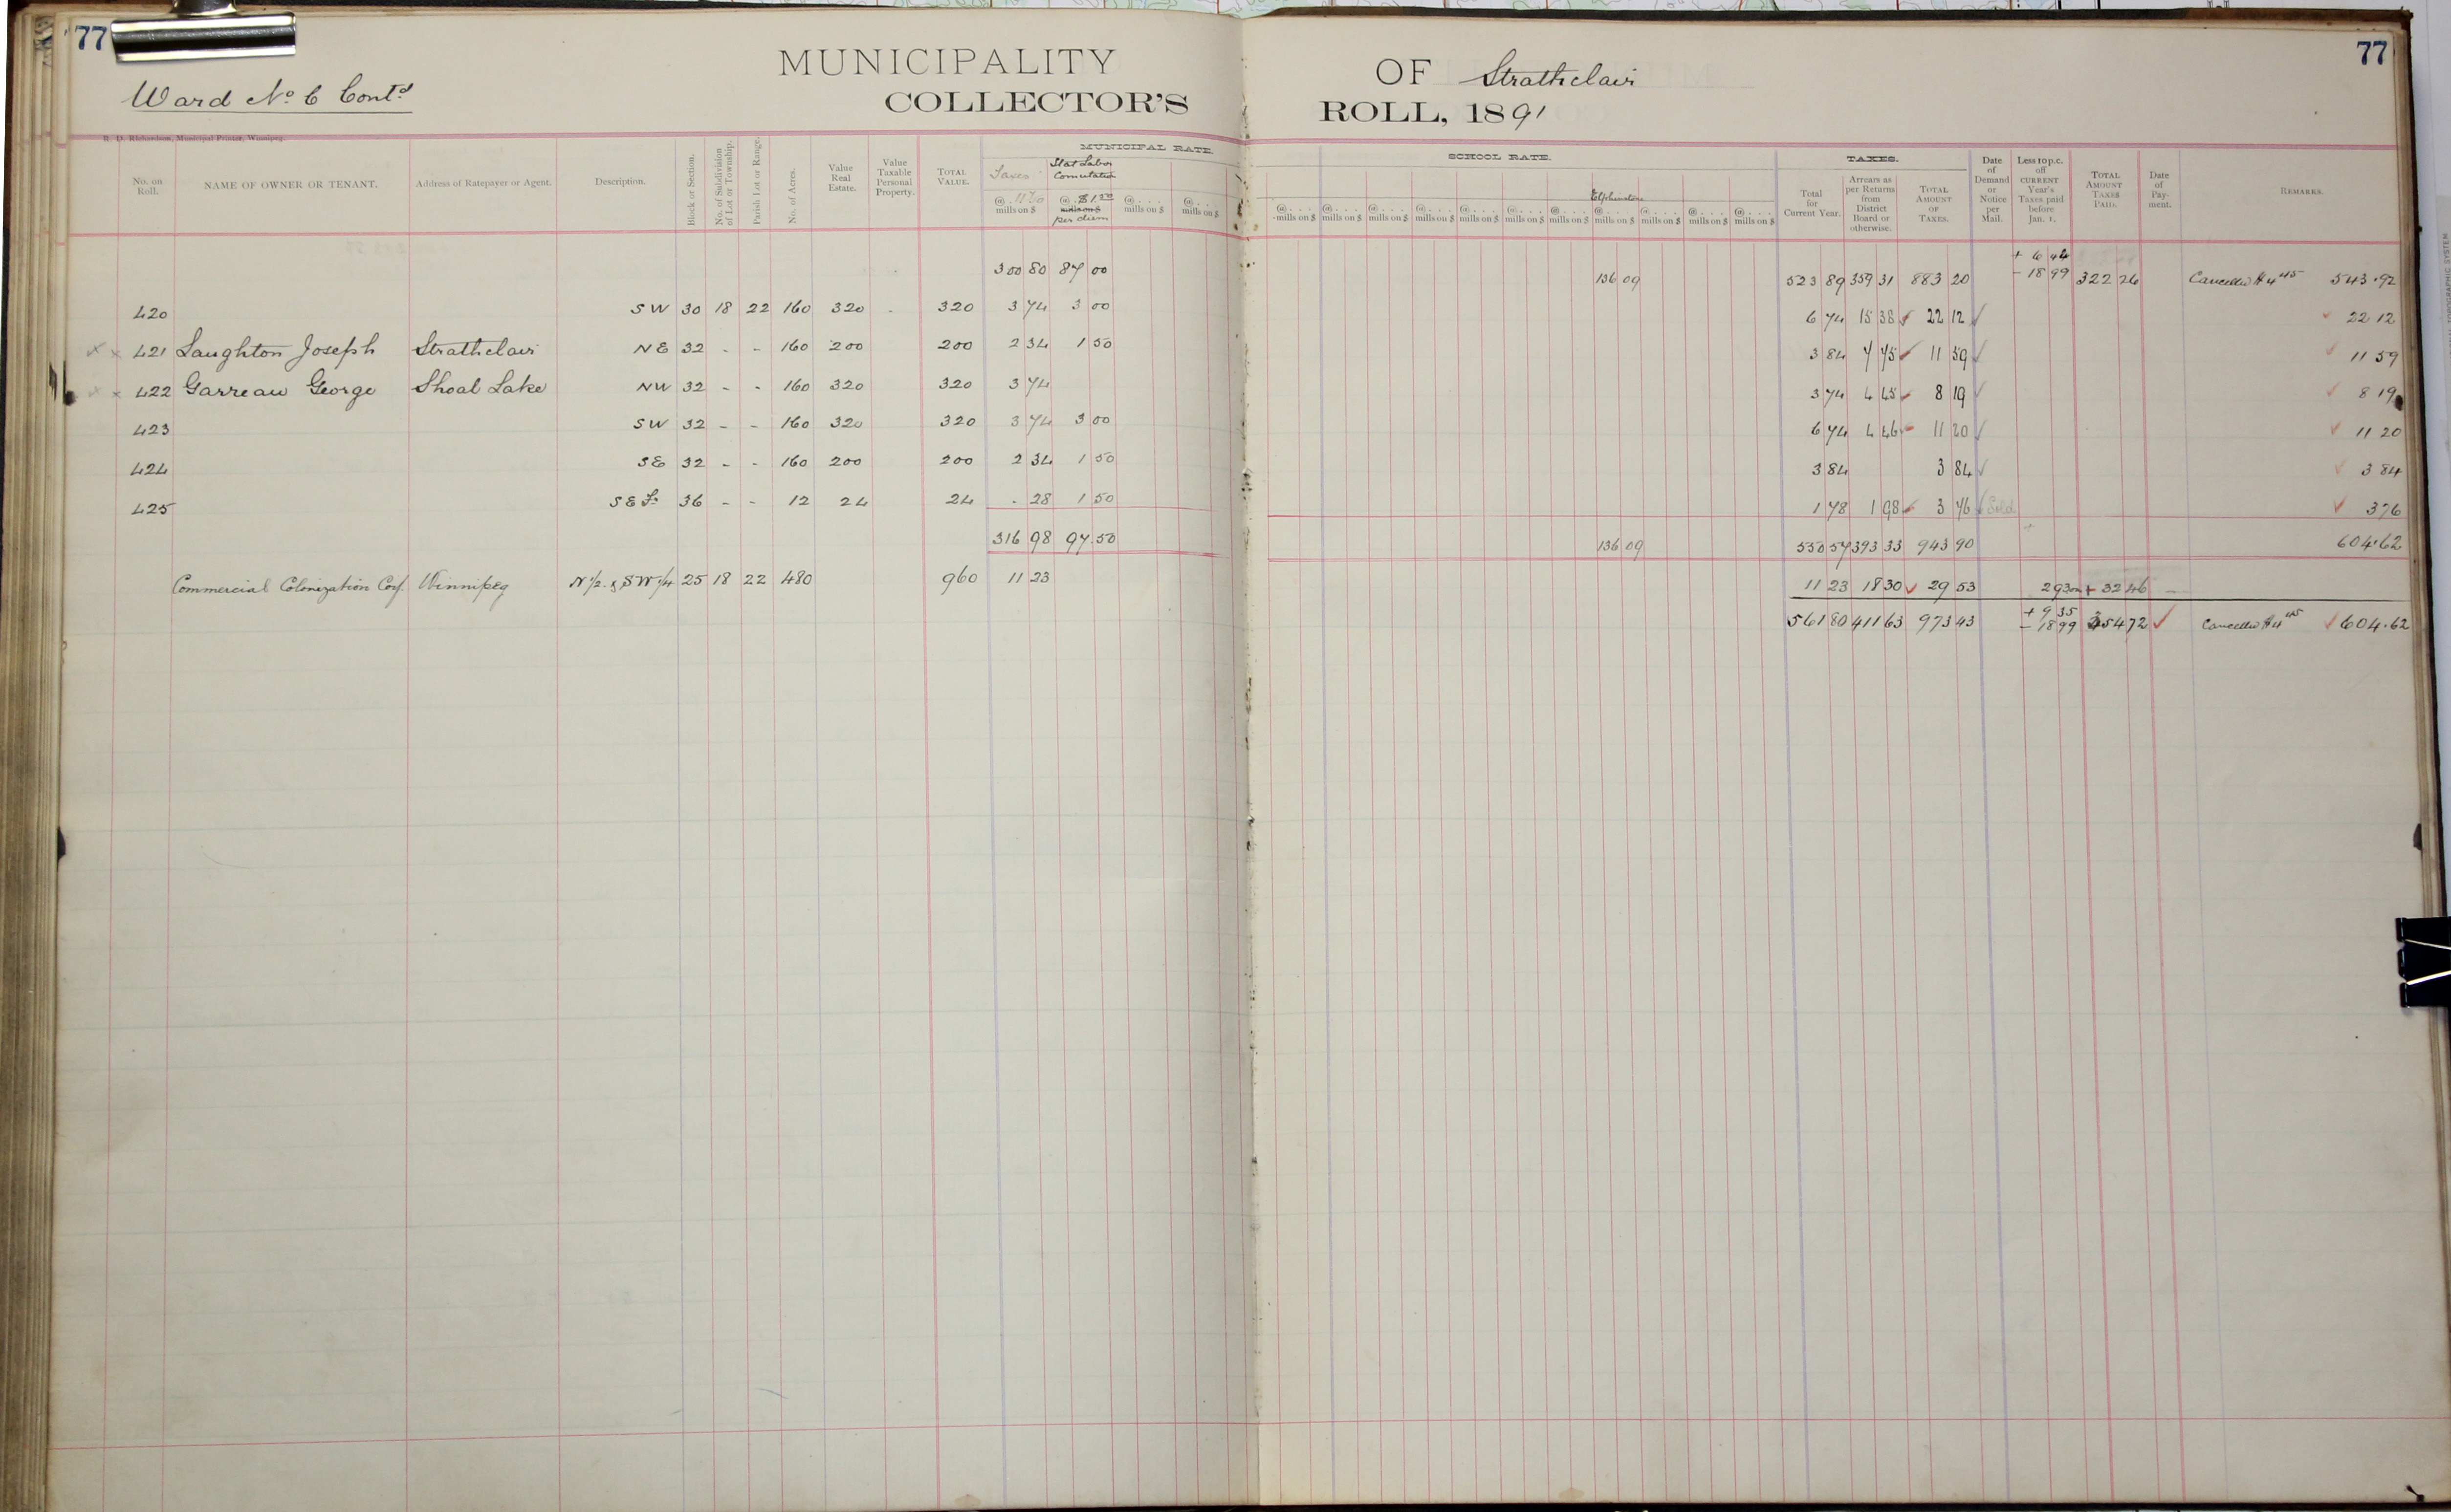 77
77
MUNICIPALITY OF Strathclair
Ward No 6 Cont'd
COLLECTOR'S ROLL, 1891
R. D. Richardson, Municipal Printer, Winnipeg.
MUNICIPAL RATE. SCHOOL RATE. TAXES.
No. on Roll. NAME OF OWNER OR TENANT. Address of Ratepayer or Agent. Description. Block or Section. No. of Subdivision of Lot or Township. Parish Lot or Range. No. of Acres. Value Real Estate. Value Taxable Personal Property. TOTAL VALUE. Taxes @ 11 70 mills on $ Stat Labor Comutation @ $1.50 mills on $ per diem @ . . . . mills on $ @ . . . . mills on $
@ . . . . mills on $ @ . . . . mills on $ @ . . . . mills on $ @ . . . . mills on $ @ . . . . mills on $ @ . . . . mills on $ @ . . . . mills on $ Elphinstone @ . . . . mills on $ @ . . . . mills on $ @ . . . . mills on $ @ . . . . mills on $
Total for Current Year. Arrears as per Returns from District Board or otherwise. TOTAL AMOUNT OF TAXES. Date of Demand or Notice per Mail. Less 10 p.c. off CURRENT Year's Taxes paid before Jan. 1. TOTAL AMOUNT TAXES PAID. Date of Payment. REMARKS.
+ 6 44
300 80 87 00 136 09 523 89 359 31 883 20 - 18 99 322 26 Cancelled $4 45 543.92
420 SW 30 18 22 160 320 320 3 74 3 00 6 74 15 38 ✓ 22 12 ✓ ✓ 22 12
x x 421 Laughton Joseph Strathclair NE 32 - - 160 200 200 2 34 1 50 3 84 7 75 ✓ 11 59 ✓ ✓ 11 59
x x 422 Garreau George Shoal Lake NW 32 - - 160 320 320 3 74 3 74 4 45 ✓ 8 19 ✓ ✓ 8 19
423 SW 32 - - 160 320 320 3 74 3 00 6 74 4 46 ✓ 11 20 ✓ ✓ 11 20
424 SE 32 - - 160 200 200 2 34 1 50 3 84 3 84 ✓ ✓ 3 84
425 SE Fr 36 - - 12 24 24 . 28 1 50 1 78 1 98 ✓ 3 76 ✓ Sold ✓ 3 76
316 98 97.50 136 09 550 57 393 33 943 90 604.62
Commercial Colonization Corp. Winnipeg N 1/2 & SW 1/4 25 18 22 480 960 11 23 11 23 18 30 ✓ 29 53 2 93 + 32 46
+ 9 35
561 80 411 63 973 43 - 18 99 354 72 ✓ Cancelled $4 45 ✓ 604.62